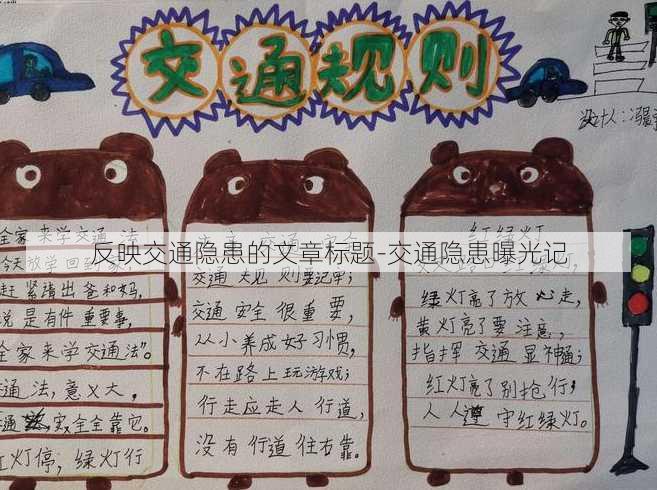 交通规则
设计人：冯
反映交通隐患的文章标题-交通隐患曝光记
全家来学交通法
今天放学回到家，
赶紧请出爸和妈，
说是有件重要事，
全家来学交通法"。
通法，意义大，
交通安全全靠它。
红灯停，绿灯行
交通规则要记牢；
交通安全很重要，
从小养成好习惯，
不在路上玩游戏；
行走应走人行道，
没有行道往右靠。
红绿灯
绿灯亮了放心走，
黄灯亮了要注意，
指挥交通显神通；
红灯亮了别抢行；
人人遵守红绿灯。